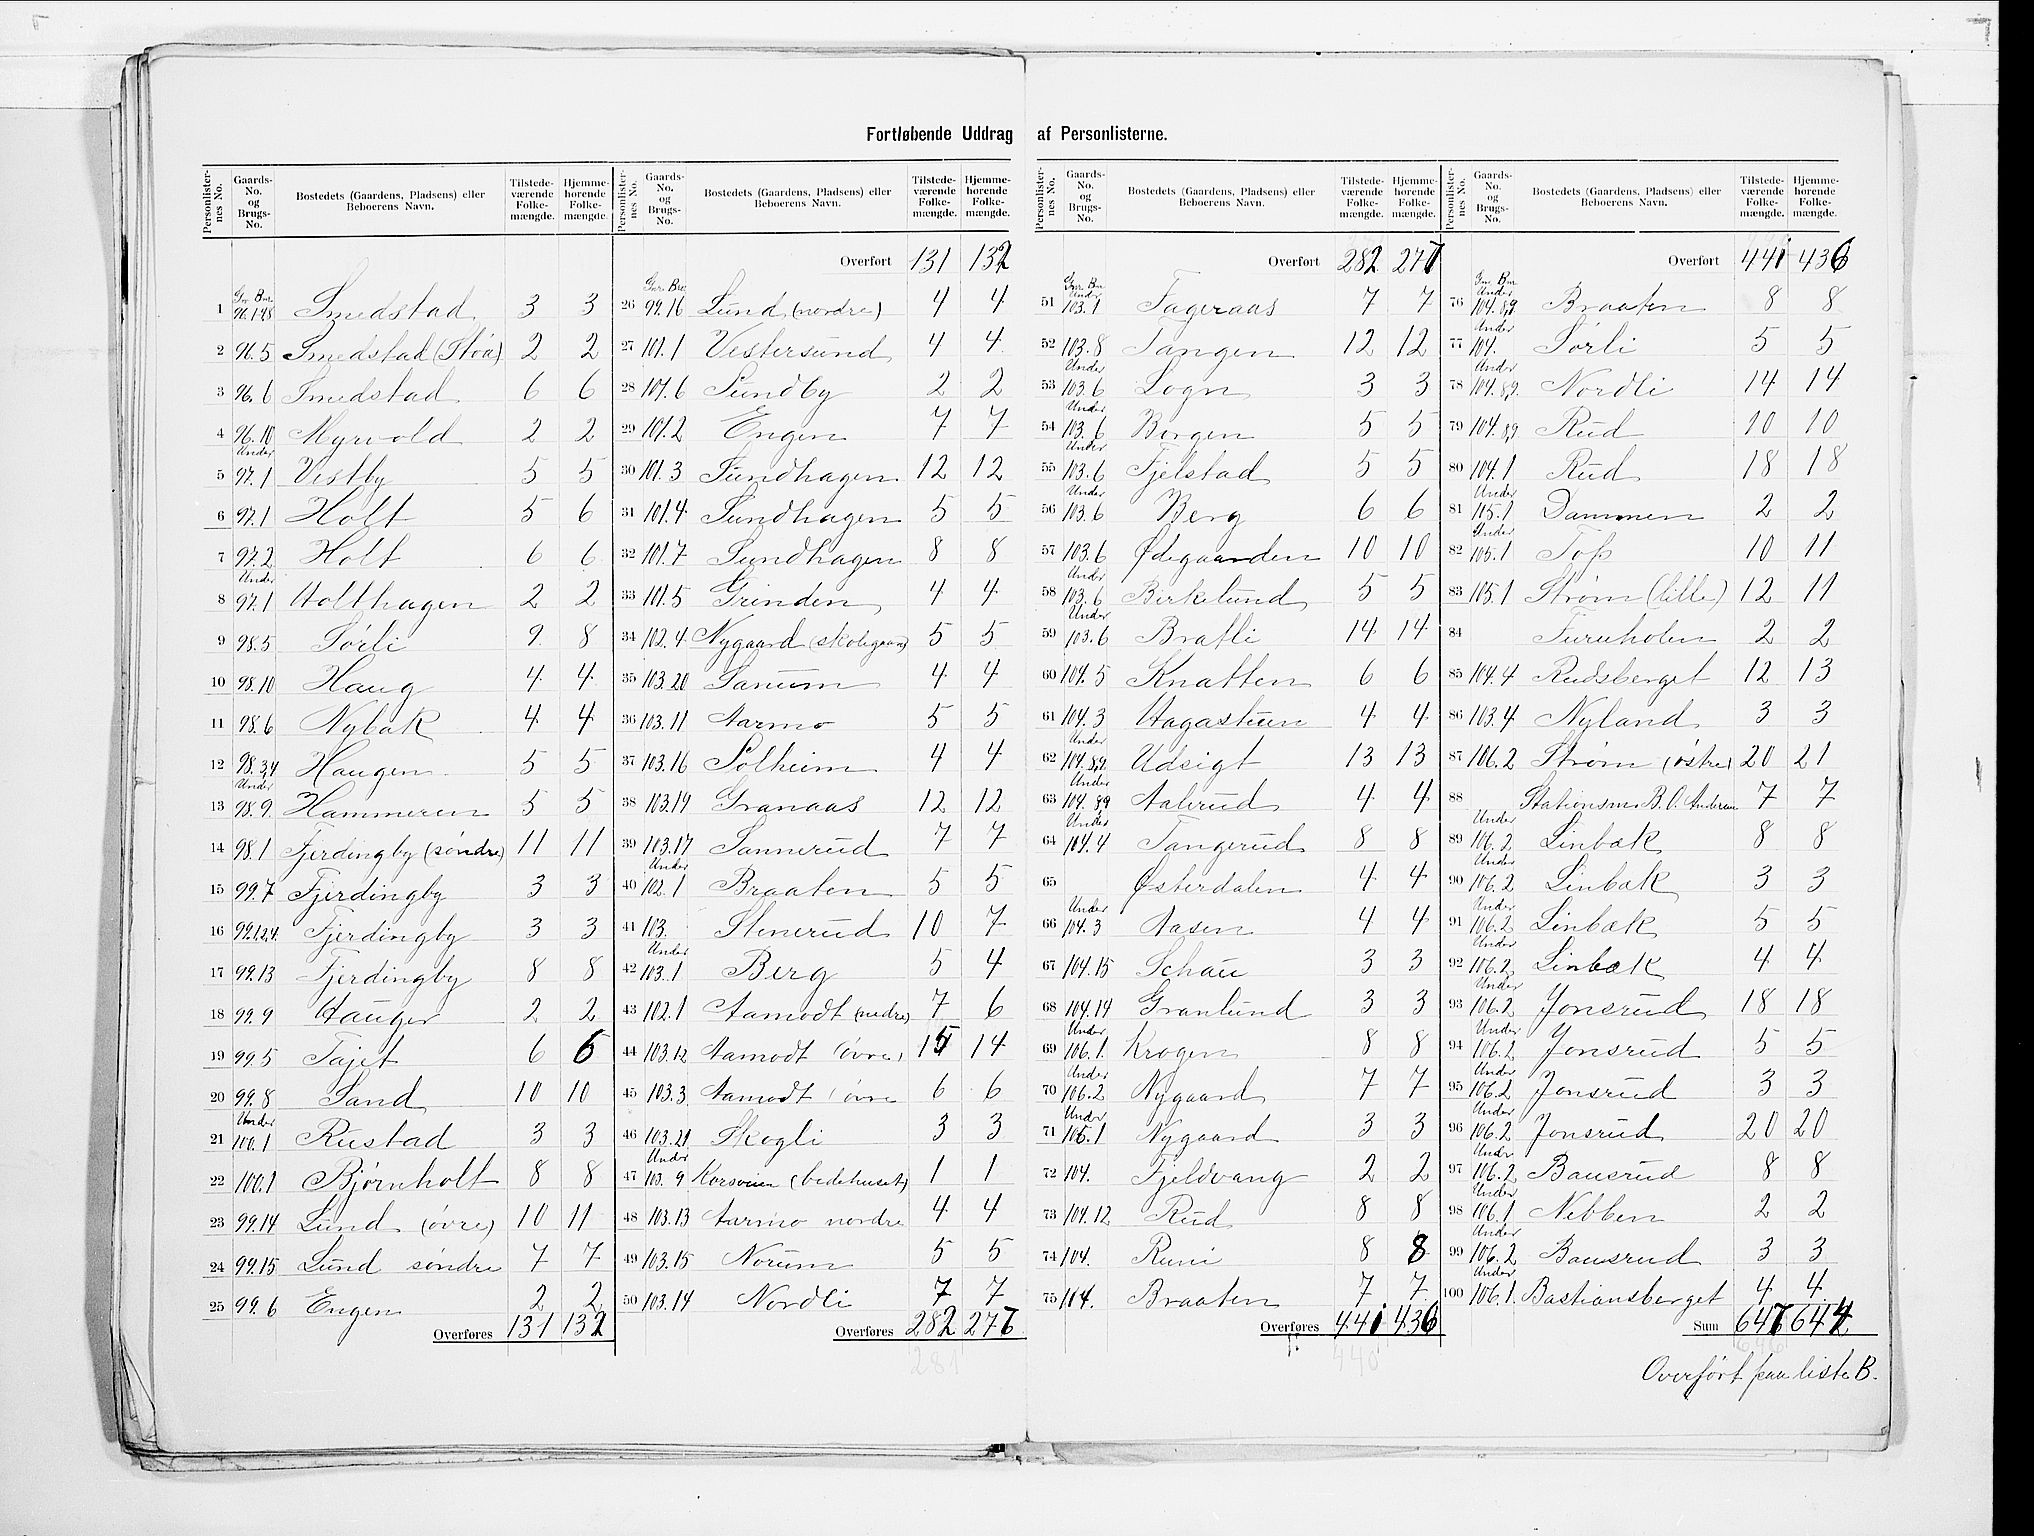 Fortløbende Uddrag af Personlisterne.
Personlisternes No. Gaards-No. og Brugs-No. Bostedets (Gaardens, Pladsens) eller Beboerens Navn. Tilstedeværende Folkemængde. Hjemmehørende Folkemængde.
Gnr Bnr
1 96.148 Smedstad 3 3
2 96.5 Smedstad (Stoa) 2 2
3 96.6 Smedstad 6 6
4 96.10 Myrvold 2 2
5 Under 97.1 Vestby 5 5
6 97.1 Holt 5 6
7 97.2 Holt 6 6
8 Under 97.1 Holthagen 2 2
9 98.5 Sørli 9 8
10 98.10 Haug 4 4
11 98.6 Nybak 4 4
12 98.3,4 Haugen 5 5
13 Under 98.9 Hammeren 5 5
14 98.1 Fjerdingby (søndre) 11 11
15 99.7 Fjerdingby 3 3
16 99.1,2,4 Fjerdingby 3 3
17 99.13 Fjerdingby 8 8
18 99.9 Hauger 2 2
19 99.5 Tajet 6 6
20 99.8 Sand 10 10
21 Under 100.1 Rustad 3 3
22 100.1 Bjørnholt 8 8
23 99.14 Lund (øvre) 10 11
24 99.15 Lund søndre 7 7
25 99.6 Engen 2 2
Overføres 131 132
Personlisternes No. Gaards-No. og Brugs-No. Bostedets (Gaardens, Pladsens) eller Beboerens Navn. Tilstedeværende Folkemængde. Hjemmehørende Folkemængde.
Overført 131 132
Gnr. Bnr
26 99.16 Lund (nordre) 4 4
27 101.1 Vestersund 4 4
28 101.6 Sundby 2 2
29 101.2 Engen 7 7
30 101.3 Sundhagen 12 12
31 101.4 Sundhagen 5 5
32 101.7 Sundhagen 8 8
33 101.5 Grinden 4 4
34 102.4 Nygaard (skolegaard) 5 5
35 103.20 Sanum 4 4
36 103.11 Aarmo 5 5
37 103.16 Solheim 4 4
38 103.19 Granaas 12 12
39 103.17 Sannerud 7 7
40 Under 102.1 Braaten 5 5
41 103. Stenerud 10 7
42 Under 103.1 Berg 5 4
43 102.1 Aamodt (nedre) 7 6
44 103.12 Aamodt (øvre) 15 14
45 103.3 Aamodt (øvre 6 6
46 103.21 Skogli 3 3
47 Under 103.9 Korsveien (bedehuset) 1 1
48 103.13 Aarmo nordre 4 4
49 103.15 Norum 5 5
50 103.14 Nordli 7 7
Overføres 282 277
281
Personlisternes No. Gaards-No. og Brugs-No. Bostedets (Gaardens, Pladsens) eller Beboerens Navn. Tilstedeværende Folkemængde. Hjemmehørende Folkemængde.
Overført 282 277
Gnr Bnr
51 Under 103.1 Fageraas 7 7
52 103.8 Tangen 12 12
53 Under 103.6 Sogn 3 3
54 Under 103.6 Borgen 5 5
55 Under 103.6 Fjelstad 5 5
56 Under 103.6 Berg 6 6
57 103.6 Ødegaarden 10 10
58 Under 103.6 Birkelund 5 5
59 Under 103.6 Bratli 14 14
60 104.5 Knatten 6 6
61 104.3 Hagastuen 4 4
62 Under 104.8,9 Udsigt 13 13
63 Under 104.8,9 Aalerud 4 4
64 Under 104.4 Tangerud 8 8
65 Østerdalen 4 4
66 Under 104.3 Aasen 4 4
67 104.15 Schau 3 3
68 104.14 Granlund 3 3
69 Under 106.1. Krogen 8 8
70 Under 106.2 Nygaard 7 7
71 Under 106.1 Nygaard 3 3
72 104. Fjeldvang 2 2
73 104.12 Rud 8 8
74 104. Runi 8 8
75 104. Braaten 7 7
Overføres 441 436
440
Personlisternes No. Gaards-No. og Brugs-No. Bostedets (Gaardens, Pladsens) eller Beboerens Navn. Tilstedeværende Folkemængde. Hjemmehørende Folkemængde.
Overført 441 436
Gnr Bnr
76 Under 104.8,9 Braaten 8 8
77 Under 104. Sørli 5 5
78 Under 104.8,9. Nordli 14 14
79 104.8,9 Rud 10 10
80 104.1 Rud 18 18
81 Under 115.1 Dammen 2 2
82 Under 105.1 Tøp 10 11
83 105.1 Strøm (lille) 12 11
84 Furuholen 2 2
85 104.4 Rudsberget 12 13
86 103.4 Nyland 3 3
87 106.2 Strøm (østre) 20 21
88 Stationsm B. O. Andersen 7 7
89 Under 106.2 Linbæk 8 8
90 Under 106.2 Linbæk 3 3
91 Under 106.2 Linbæk 5 5
92 Under 106.2 Linbæk 4 4
93 Under 106.2 Jonsrud 18 18
94 Under 106.2 Jonsrud 5 5
95 Under 106.2 Jonsrud 3 3
96 Under 106.2 Jonsrud 20 20
97 Under 106.2 Bausrud 8 8
98 Under 106.1 Nebben 2 2
99 Under 106.2 Bausrud 3 3
100 Under 106.1. Bastiansberget 4 4
Sum 647 644
646
Overført paa liste B.